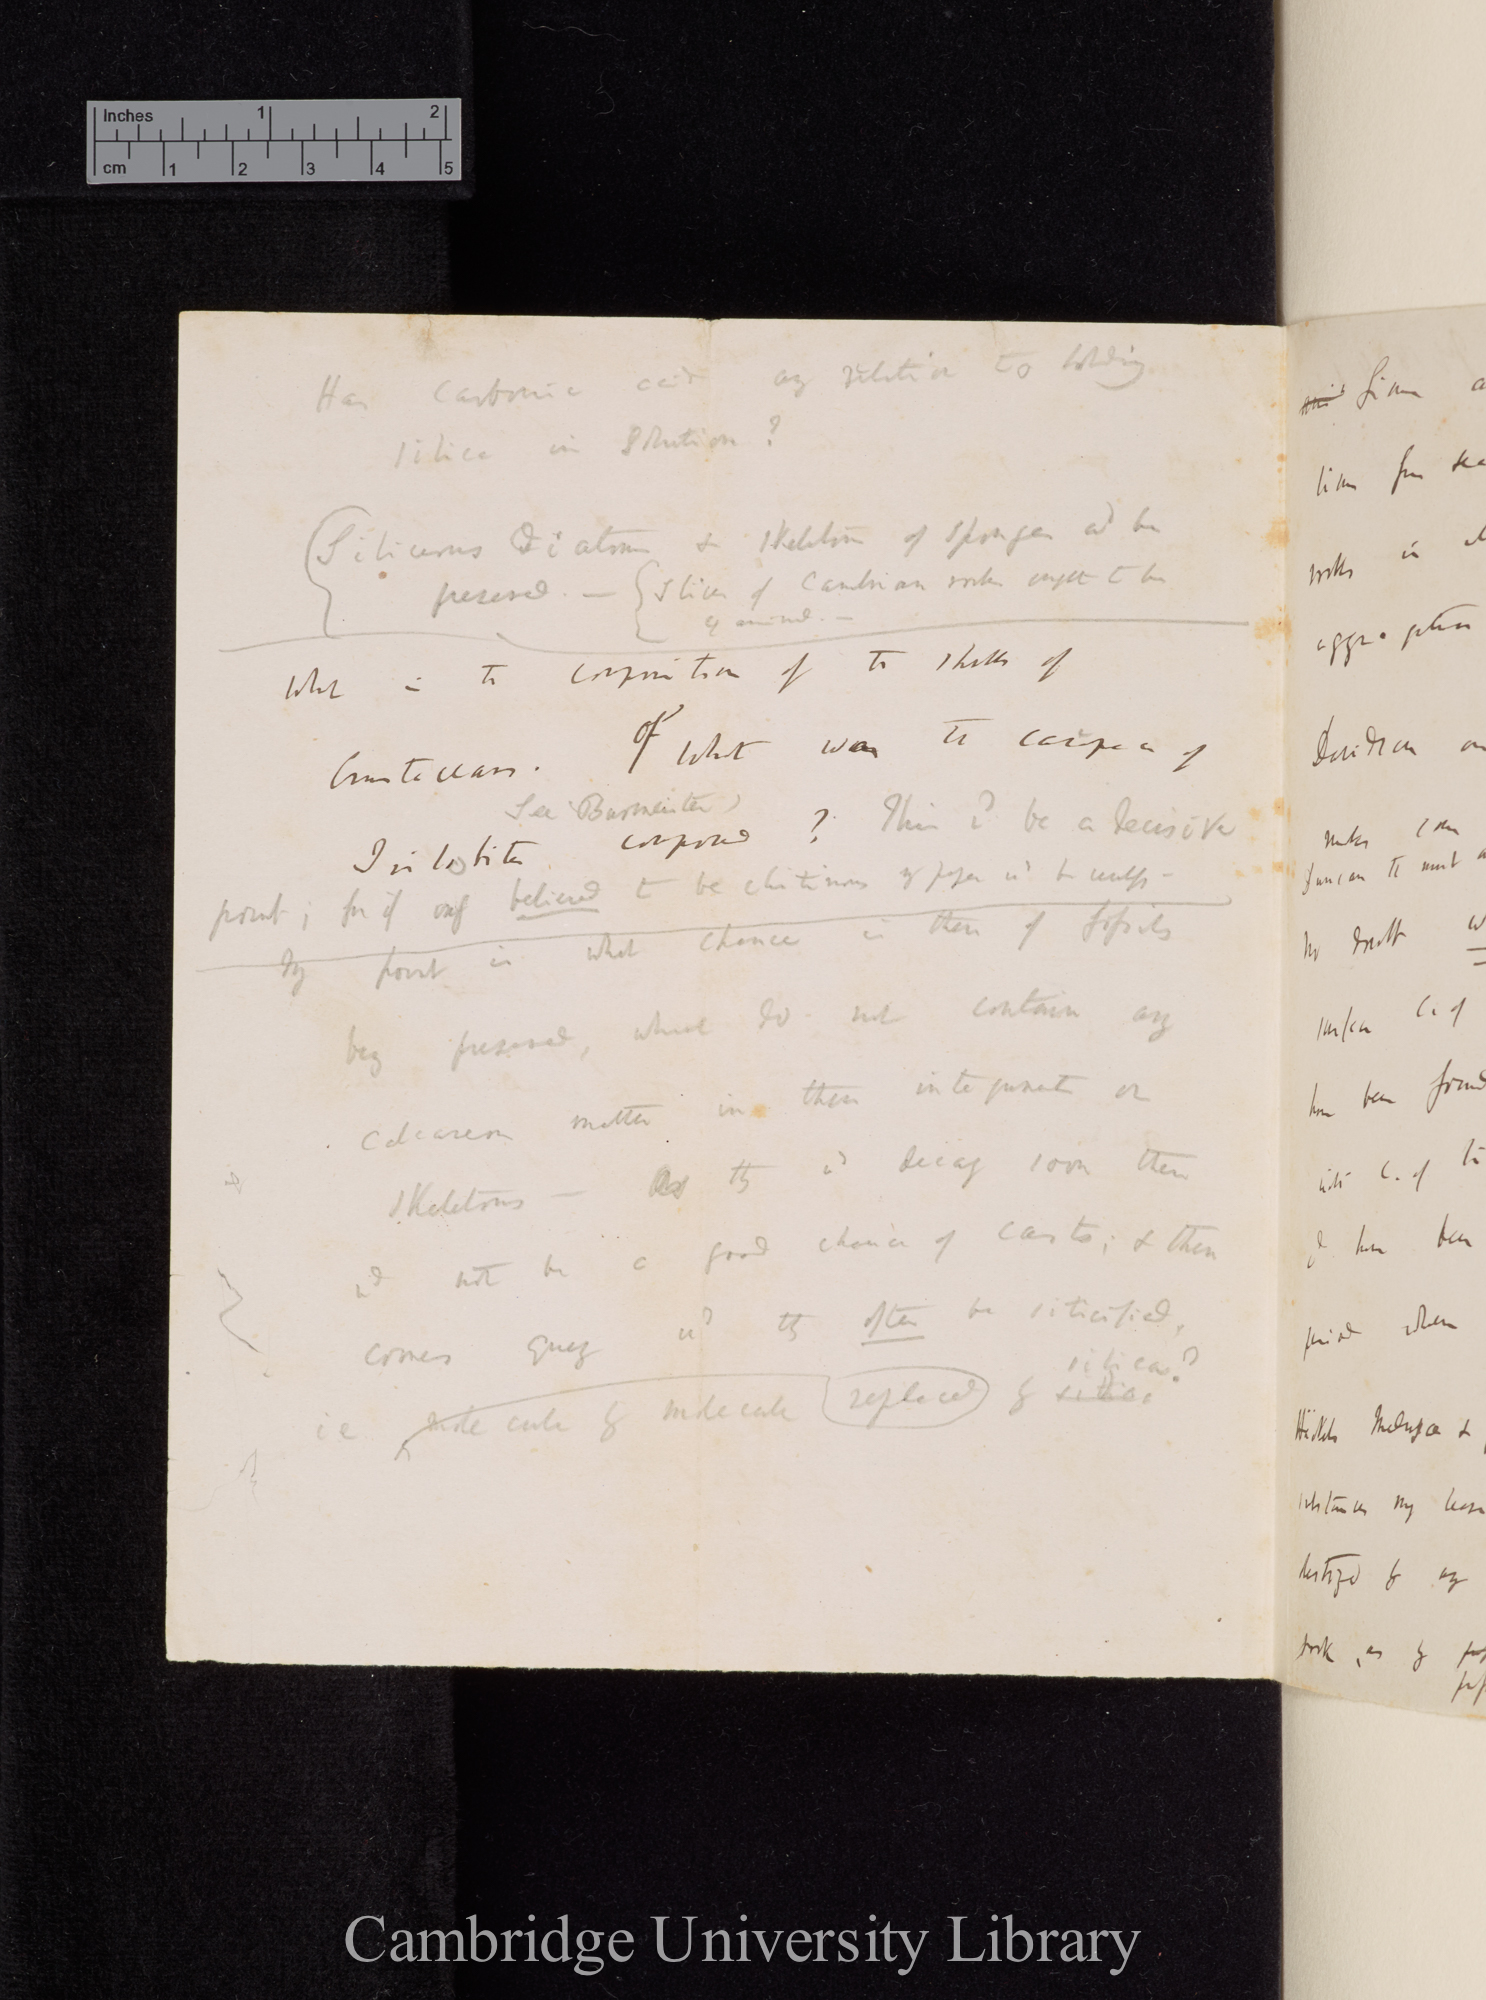 Inches 1 2
cm 1 2 3 4 5
Has carbonic acid any relation to holding
silica in solution?
Siliceous Diatoms & skeletons of sponges wd be
preserved. — Slices of Cambrian rocks ought to be
examined. —
What is the composition of the shells of
Crustaceans. Of what was the carapace of
See Burmeister
Trilobites composed? This wd be a decisive
point; for if only believed to be chitinous my paper wd be
My point is what chance is there of fossils
being preserved, which do not contain any
calcareous matter in their integument or
skeletons — As they wd decay soon there
wd not be a good chance of casts; & then
comes query wd they often be silicified,
silica?
ie molecule by molecule replaced by silica
lime
lime from sea
rocks in
aggregation
Davidson on
makes some
Duncan the most
no doubt
C. of
have been found
with C. of
I have been
period when
Häckels Medusæ &
substances may leave
destroyed by any
rock, as by
Cambridge University Library